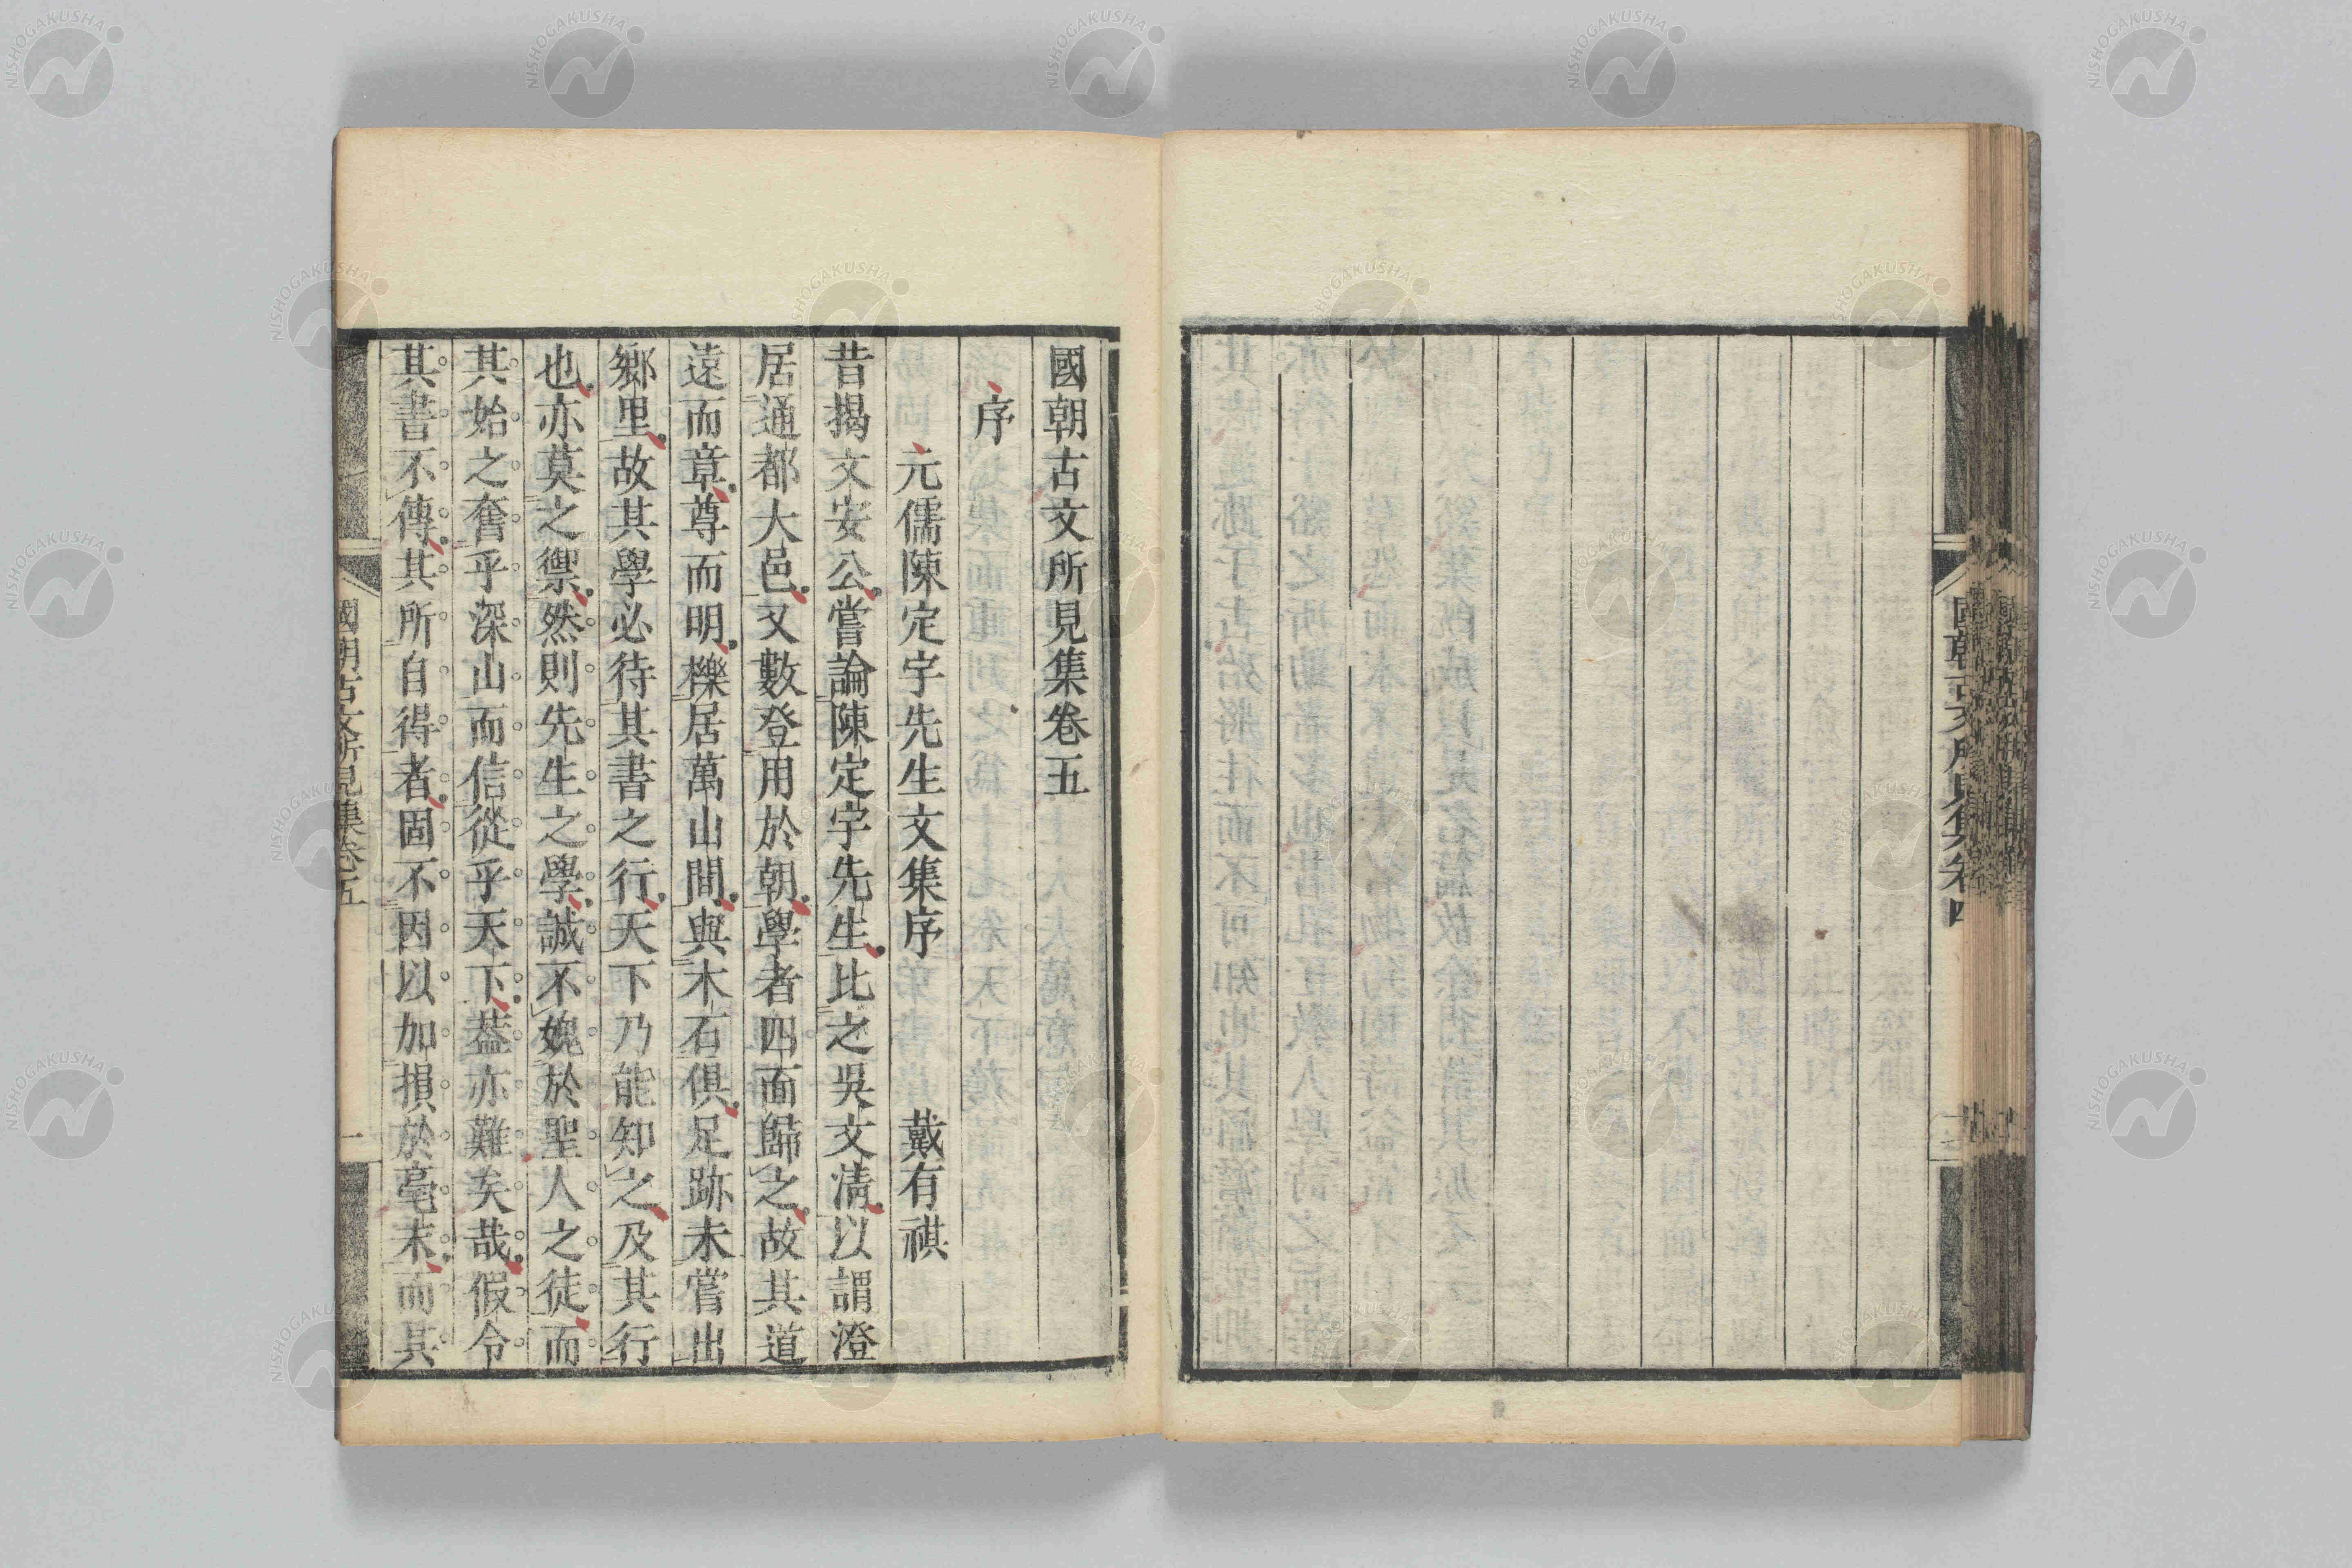 國朝古文所見集卷五
序
元儒陳定宇先生文集序 戴有祺
昔揭文安公嘗論陳定宇先生比之吳文淸以謂澄
居通都大邑又數登用於朝學者四面歸之故其道
遠而章尊而明櫟居萬山間與木石俱足跡未嘗出
鄉里故其學必待其書之行天下乃能知之及其行
也亦莫之禦然則先生之學誠不媿於聖人之徒而
其始之奮乎深山而信從乎天下葢亦難矣哉假令
其書不傳其所自得者固不因以加損於毫末而其
國朝古文所見集卷五
一
NISHOGAKUSHA